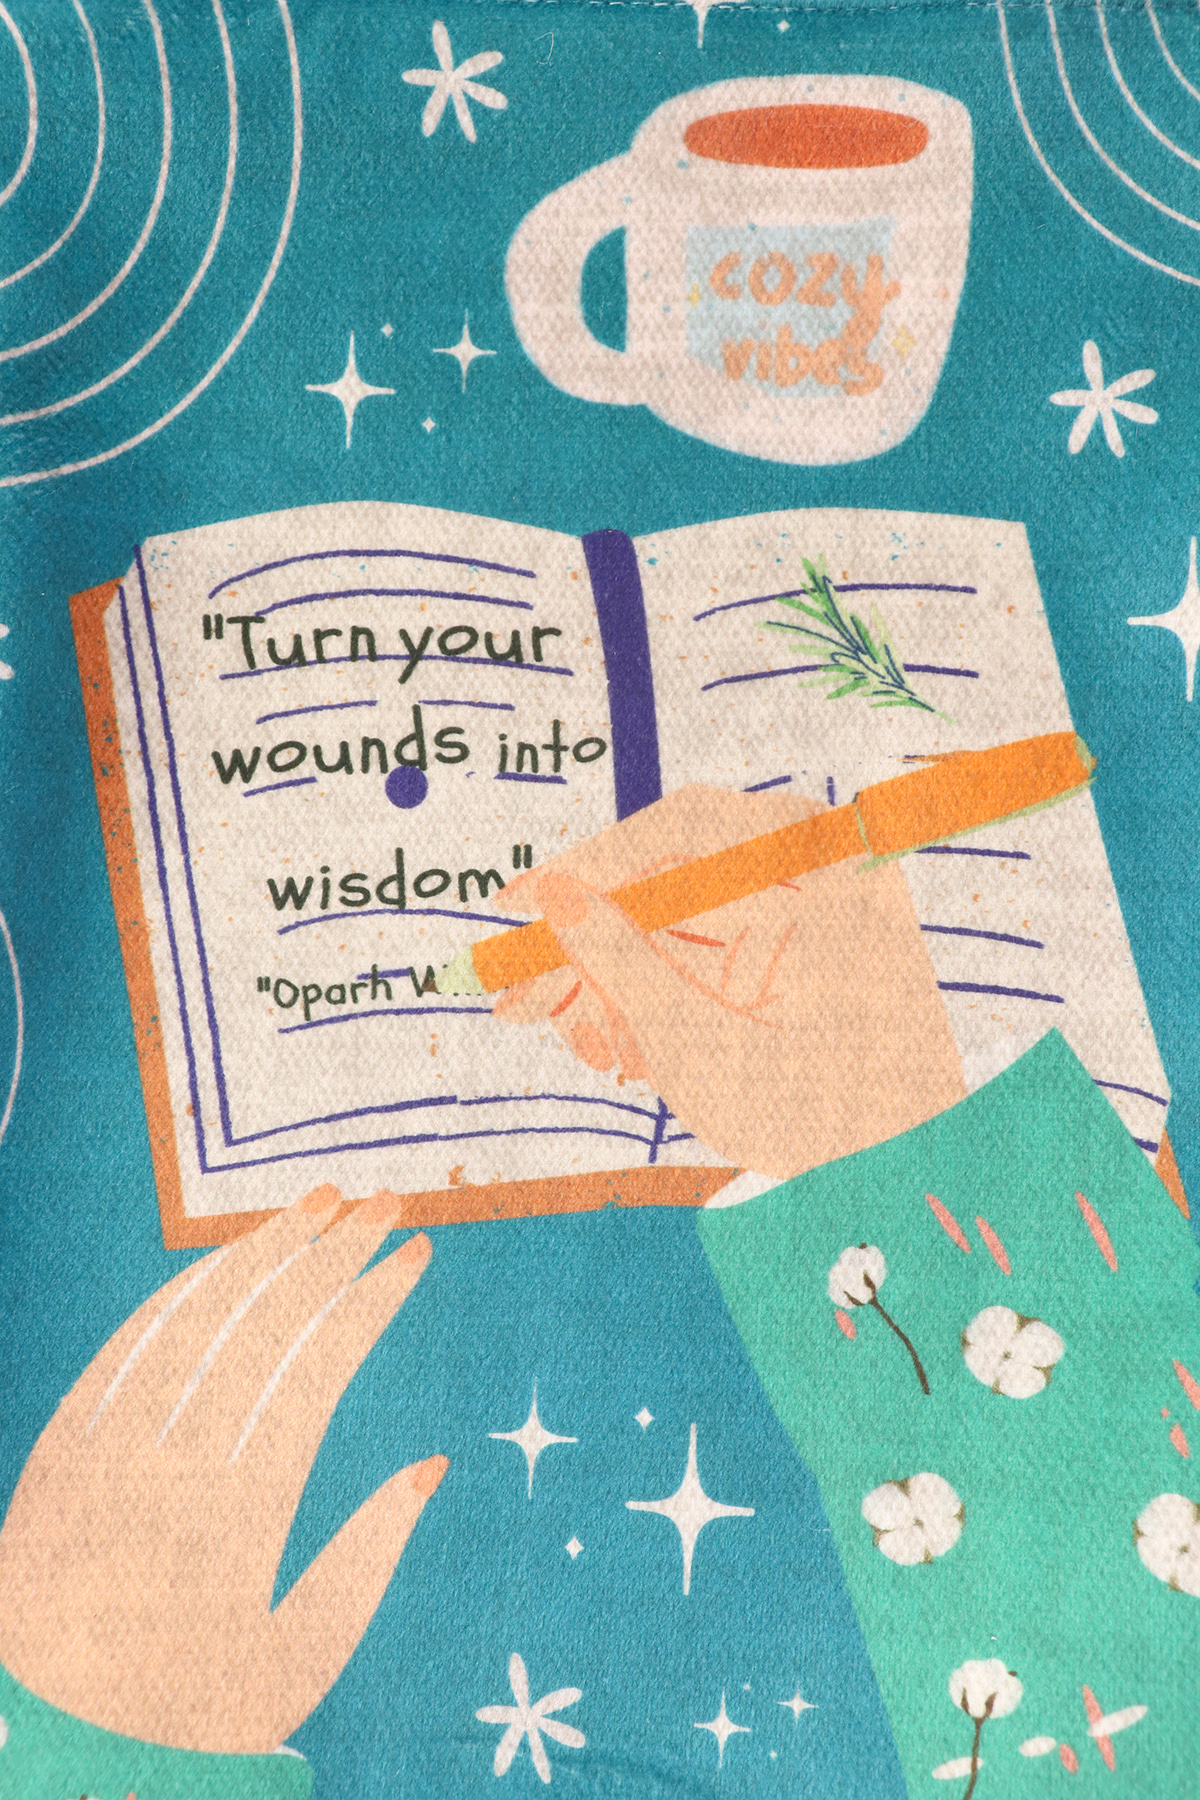 cozy
vibes
"Turn your
wounds into
wisdom"
"Oparh W...